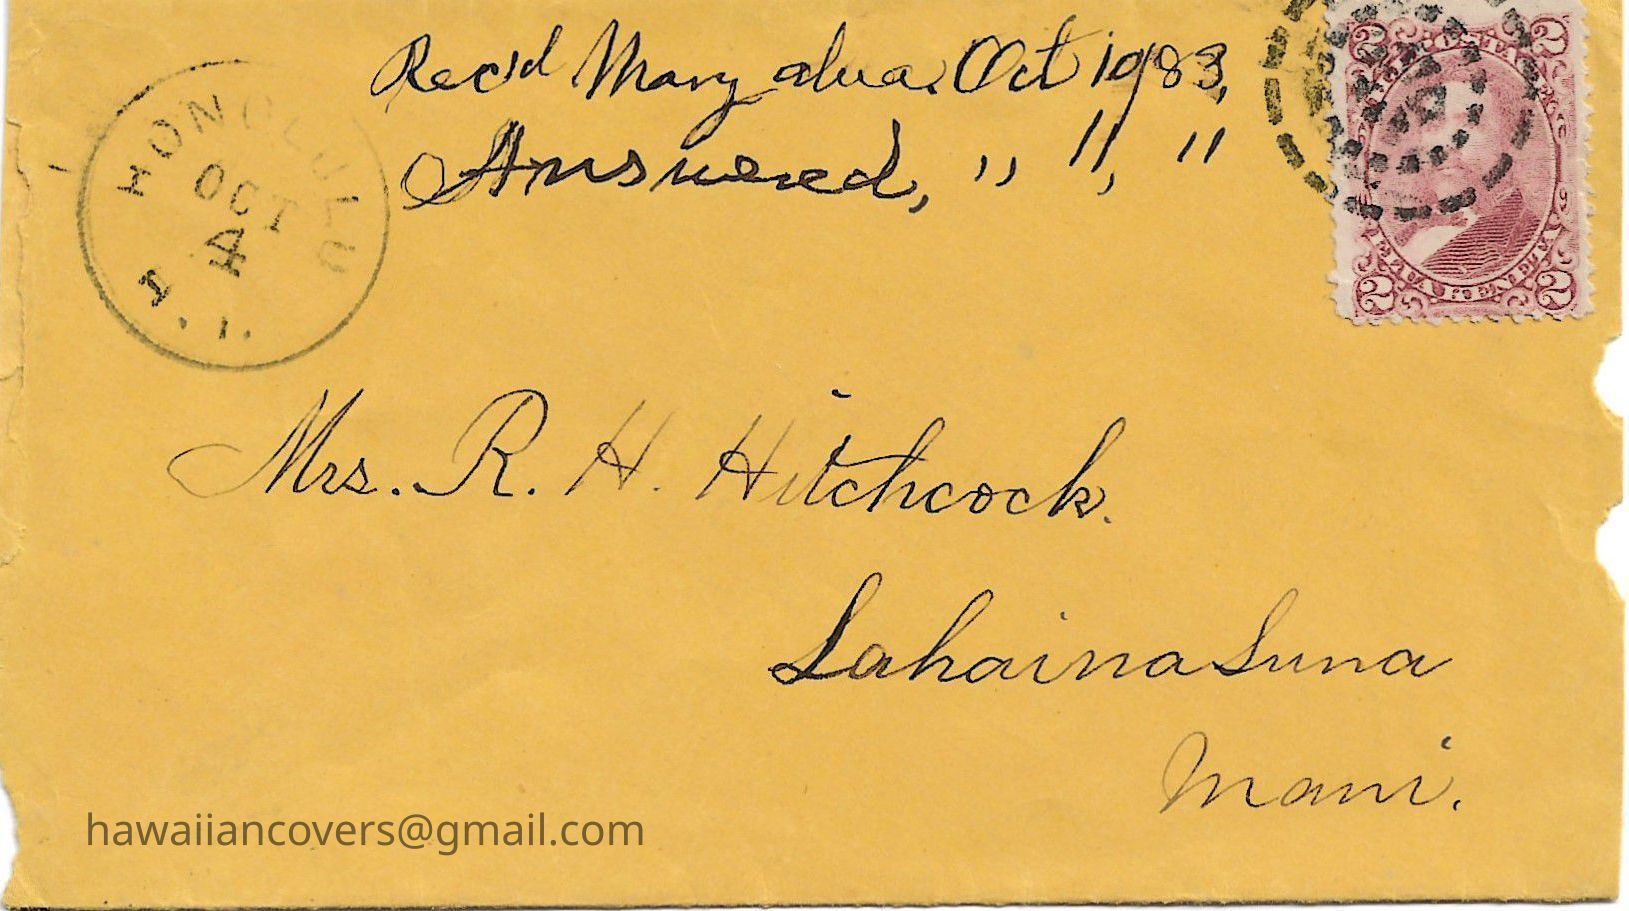 Rec'd Mary alua. Oct 1983,
Answered, " ", "
HONOLULU
OCT
4
H.I.
2 2
ELUA KENETA
2 2
Mrs. R. H. Hitchcock.
LahainaLuna
Maui.
hawaiiancovers@gmail.com